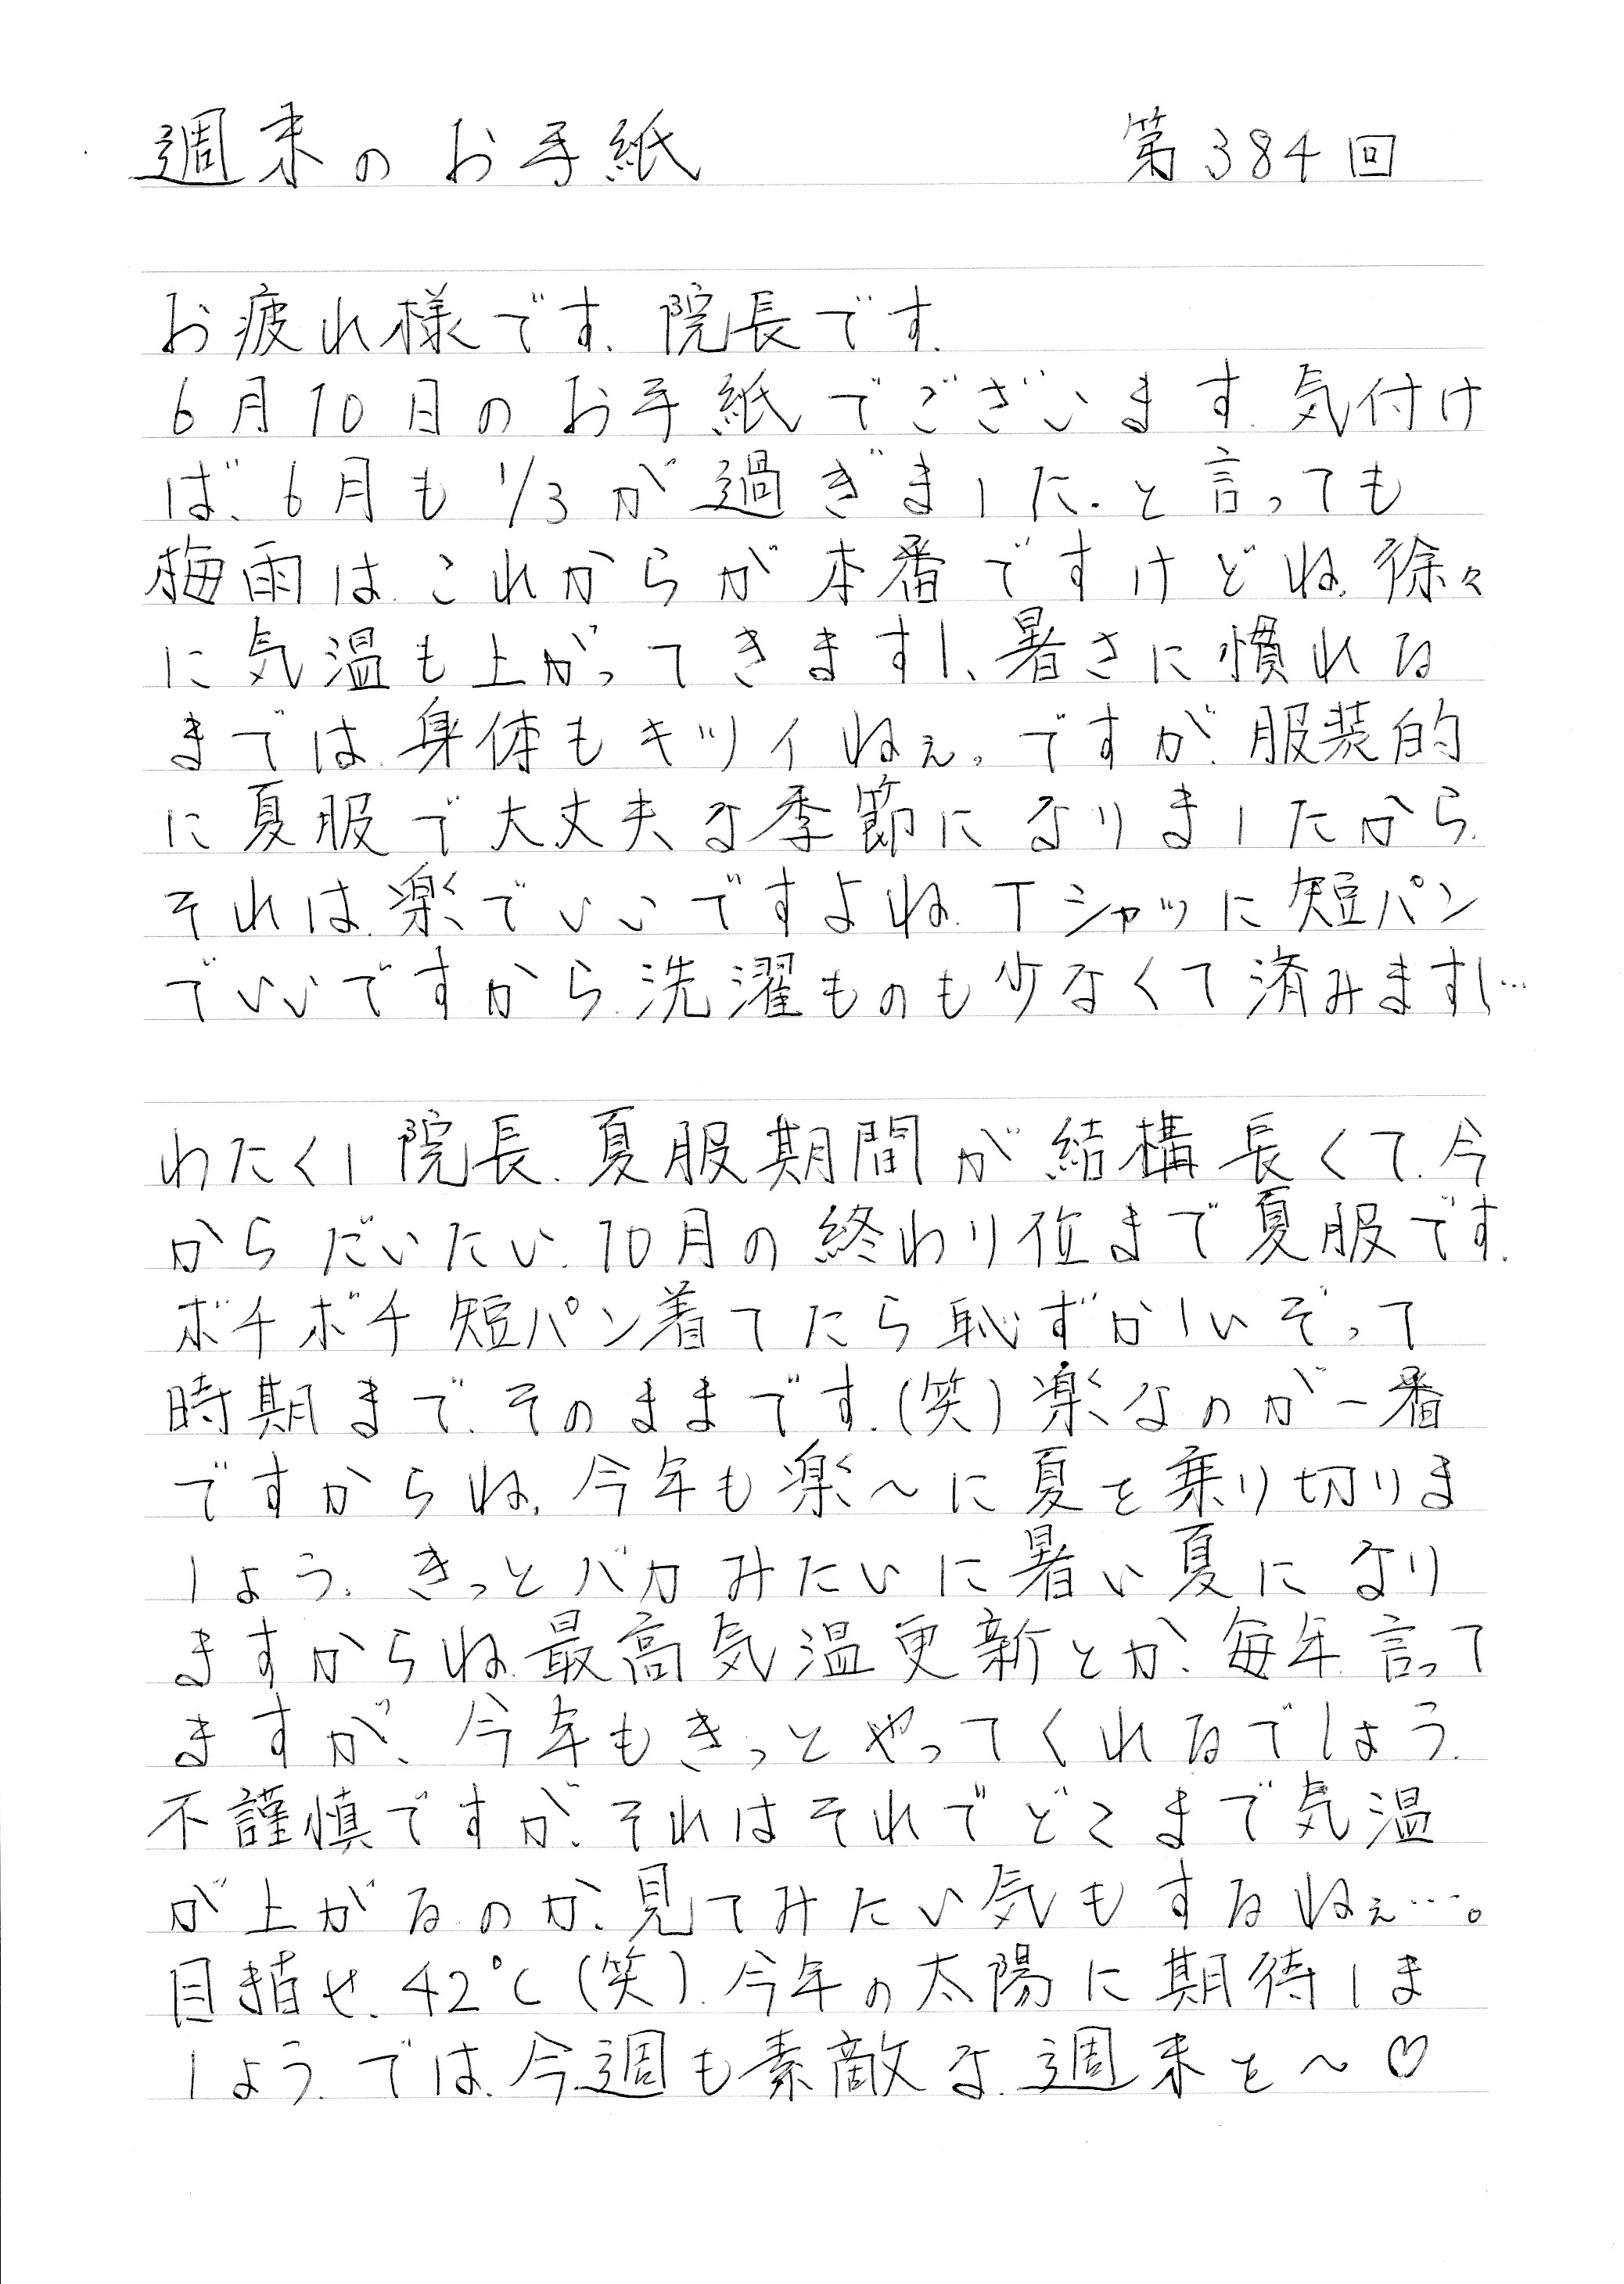 週末のお手紙 第384回
お疲れ様です.院長です.
6月10日のお手紙でございます.気付け
ば、6月も1/3が過ぎました.と言っても
梅雨は.これからが本番ですけどね.徐々
に気温も上がってきますし、暑さに慣れる
までは.身体もキツイねぇ。ですが.服装的
に夏服で大丈夫な季節になりましたから.
それは.楽でいいですよね.Tシャツに短パン
でいいですから.洗濯ものも少なくて済みますし…
わたくし院長.夏服期間が結構長くて.今
からだいたい.10月の終わり位まで夏服です.
ボチボチ短パン着てたら恥ずかしいぞって
時期まで.そのままです.(笑)楽なのが一番
ですからね.今年も楽〜に夏を乗り切りま
しょう.きっとバカみたいに暑い夏になり
ますからね.最高気温更新とか、毎年.言って
ますが、今年もきっとやってくれるでしょう.
不謹慎ですが.それはそれでどこまで気温
が上がるのか、見てみたい気もするねぇ…。
目指せ.42℃(笑).今年の太陽に期待しま
しょう.では.今週も素敵な.週末を〜♡